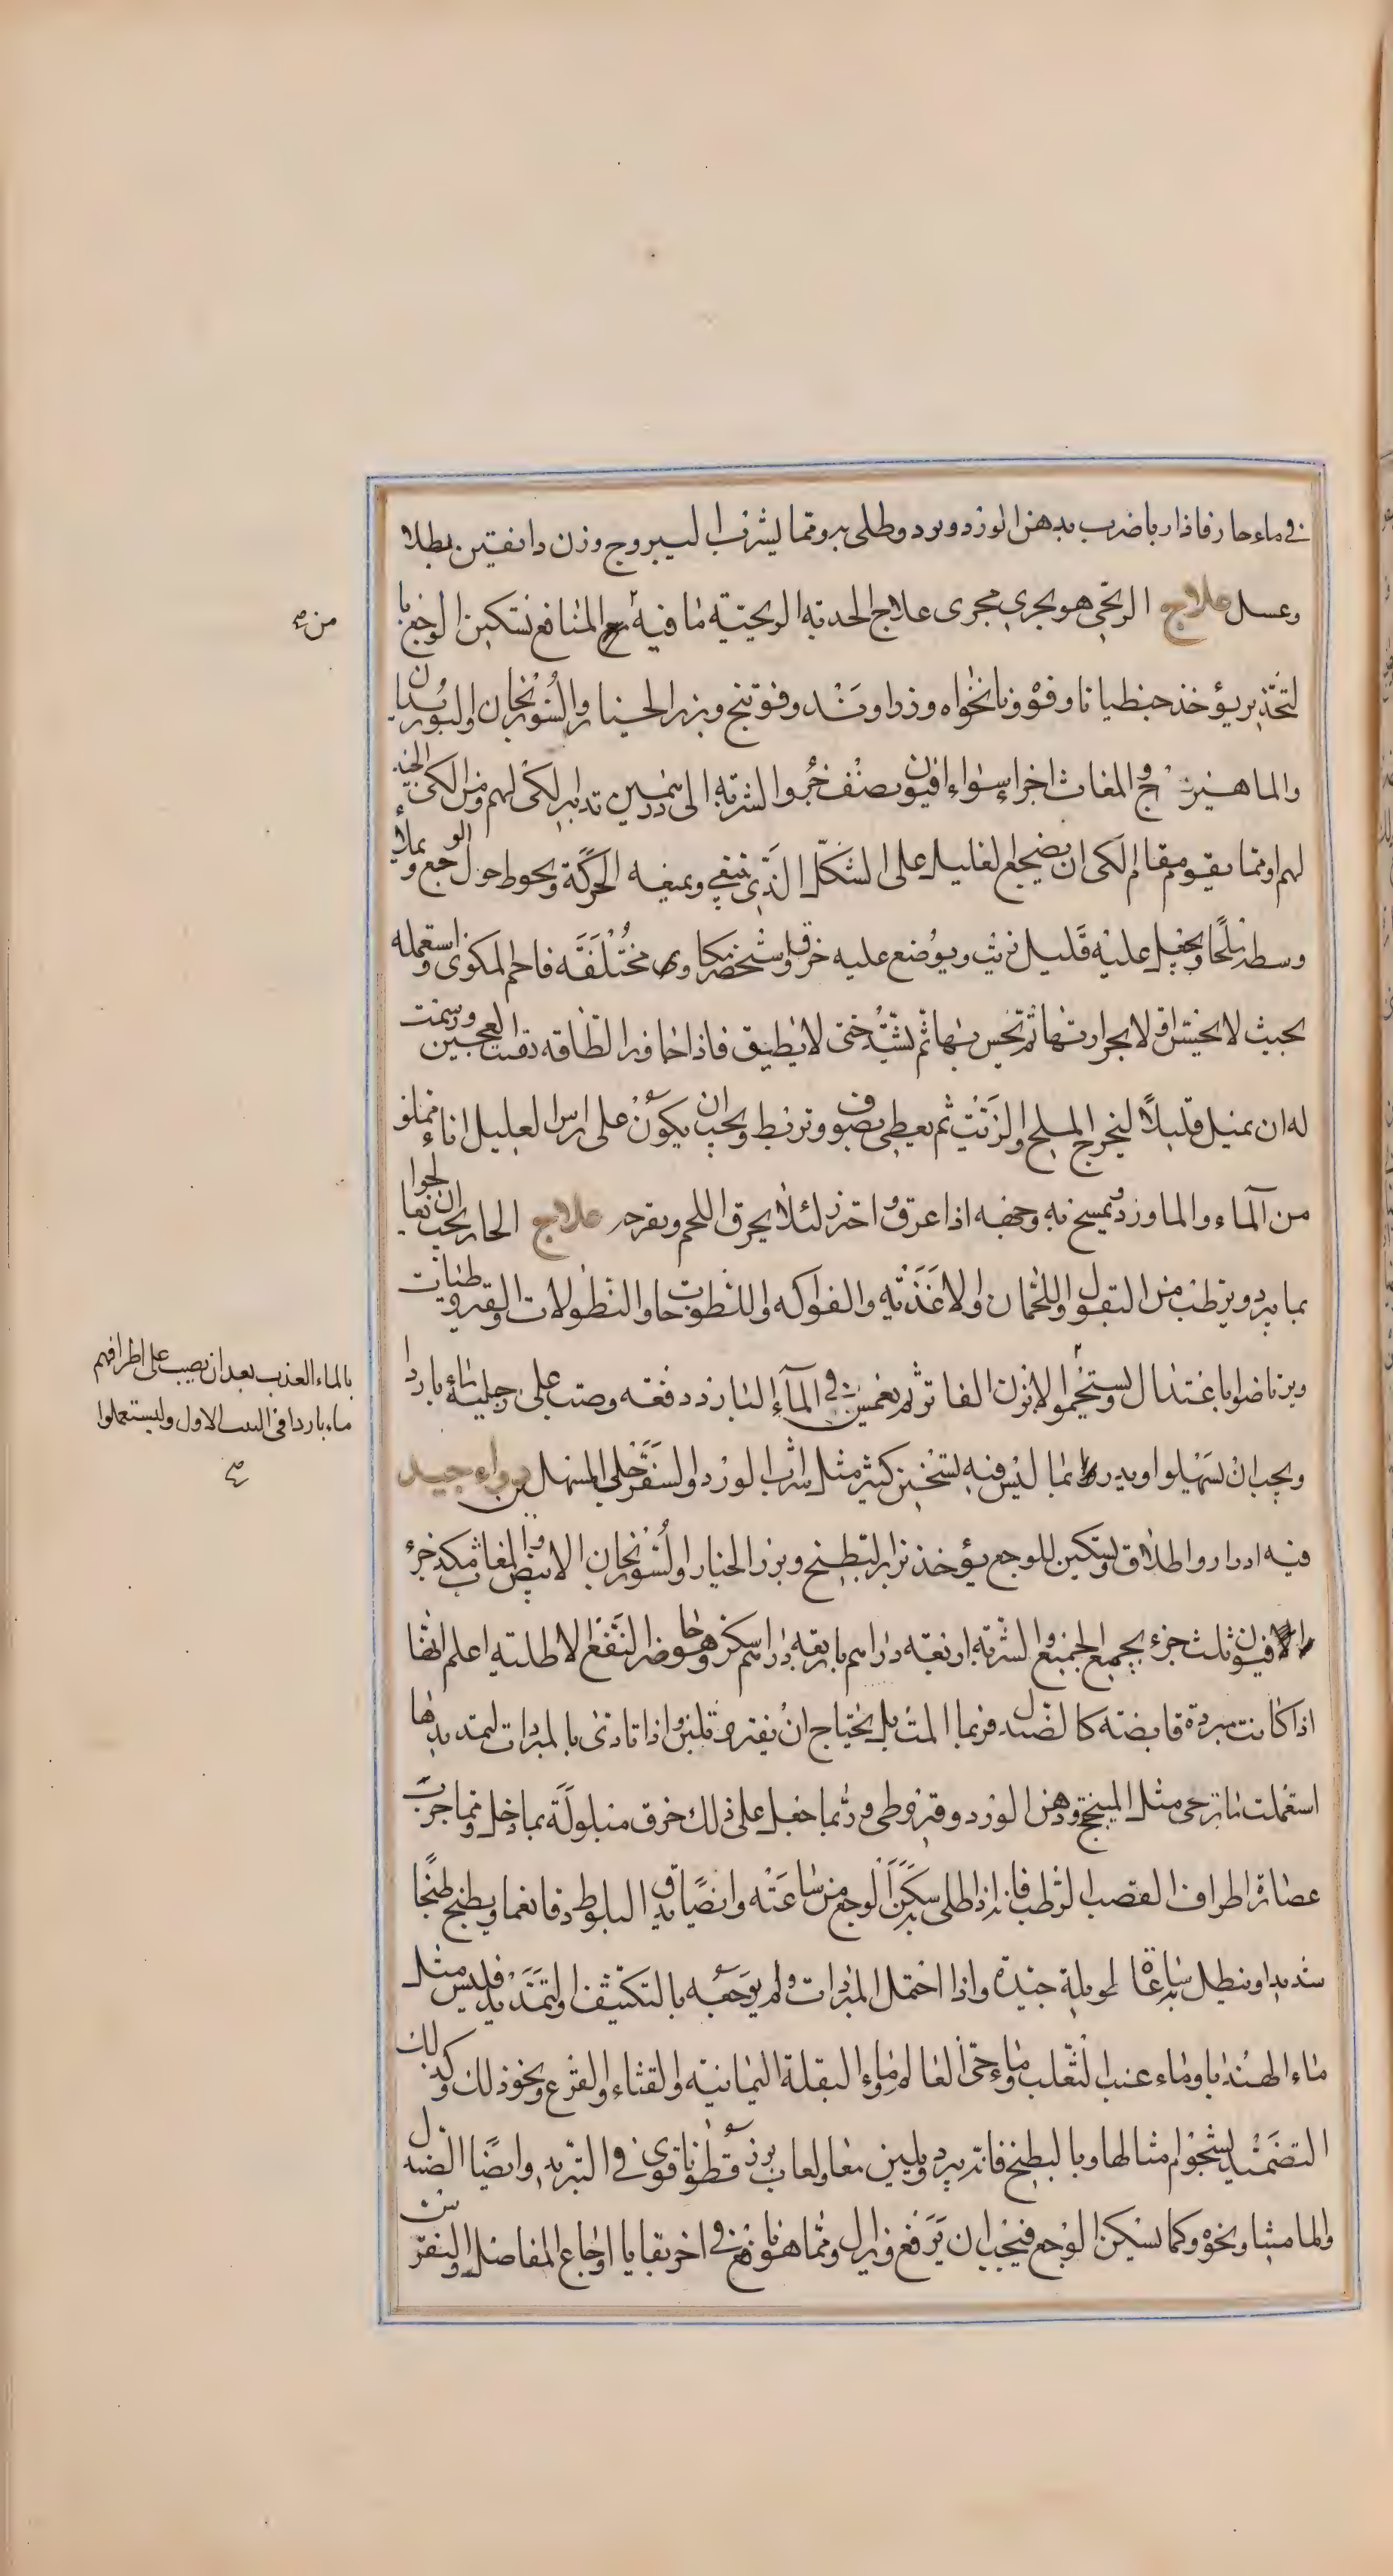 في ماء حار فاذا ربا ضرب بدهن الورد وبرد وطلى به ومما يشرب اليبروج وزن دانقين بطلا
وعسل علاج الريحي هو يجري مجرى علاج الحدبة الريحية مما فيه مع المنافع تسكين الوجع با
لتخدير يؤخذ جنطيانا وفوة ونانخواه وزراوند وفوتنج وبزر الخيار والسورنجان والبوزيدان
والماهيزج والمغاث اجزاء سواء افيون نصف جزء والشربة الى درهمين تدبير لكي لهم ومن الكي الجيد
لهم او مما يقوم مقام الكي ان يضجع العليل على الشكل الذي ينبغي ويمنعه الحركة ويحوط حول الوجع ويملأ
وسطه ملحا ويجعل عليه قليل زيت ويوضع عليه خرقة وتسخن مكاوى مختلفة فاحم المكوى واستعمله
بحيث لا يحترق لا بحرارتها ثم تحس بها ثم تشتد حتى لا يطيق فاذا جاوز الطاقة العجين ورسمت
له ان يميل قليلا ليخرج الملح والزيت ثم يغطى بصوف وتربط ويجب ان يكون على راس العليل اناء مملو
من الماء والماورد تمسح به وجهه اذا عرق واحترز لئلا يحرق اللحم ويقرحه علاج الحار يجب ان تعالجوا
بما يبرد ويرطب من البقول واللحمان والاغذية والفواكه واللطوخات والنطولات والقيروطيات
ويرتاضوا باعتدال ويستحموا لابزن الفاتر ثم يغمس في الماء البارد دفعة وصب على رجليه ماء باردا
ويجب ان تسهلوا ويدروا بما ليس فيه تسخين كثير مثل شراب الورد والسفرجلي المسهلين دواء جيد
فيه ادرار واطلاق وتسكين للوجع يؤخذ بزر البطيخ وبزر الخيار والسورنجان الابيض والمغاث مكد جزء
الافيون ثلث جزء يجمع الجميع والشربة اربعة دراهم باربعة دراهم سكر وهو حاضر النفع الاطلية اعلم انها
اذا كانت مبردة قابضة كالصندل فربما المت بل يحتاج ان يفتره قليلا واذا تاذى بالمبردات لتمديدها
استعملت ما ترخي مثل الميبختج ودهن الورد وقيروطي وربما جعل على ذلك خرق مبلولة بماء وخل ومما جرب
عصارة اطراف القصب الرطب فانه اذا طلى به سكن الوجع من ساعته وايضا يدق البلوط دقا نعما ويطبخ طبخا
شديدا وينطل به ساعة طويلة جيدة واذا احتمل المبردات ولم يوجعه بالتكثيف والتمديد فليس مثل
ماء الهندبا وماء عنب الثعلب وماء حى العالم وماء البقلة اليمانية والقثاء والقرع ونحو ذلك وكذلك
التضميد بشحوم امثالها وبالبطيخ فانه يبرد ويلين معا ولعاب بزر قطونا قوى في التبريد وايضا الصندل
والماميثا ونحوه وكما تسكين الوجع فيجب ان يرفع ويزال ومما هو نافع في اخر بقايا اوجاع المفاصل والنقرس
من صح
بالماء العذب بعد ان يصب على اطرافهم
ماء باردا في الاول وليستعملوا
صح